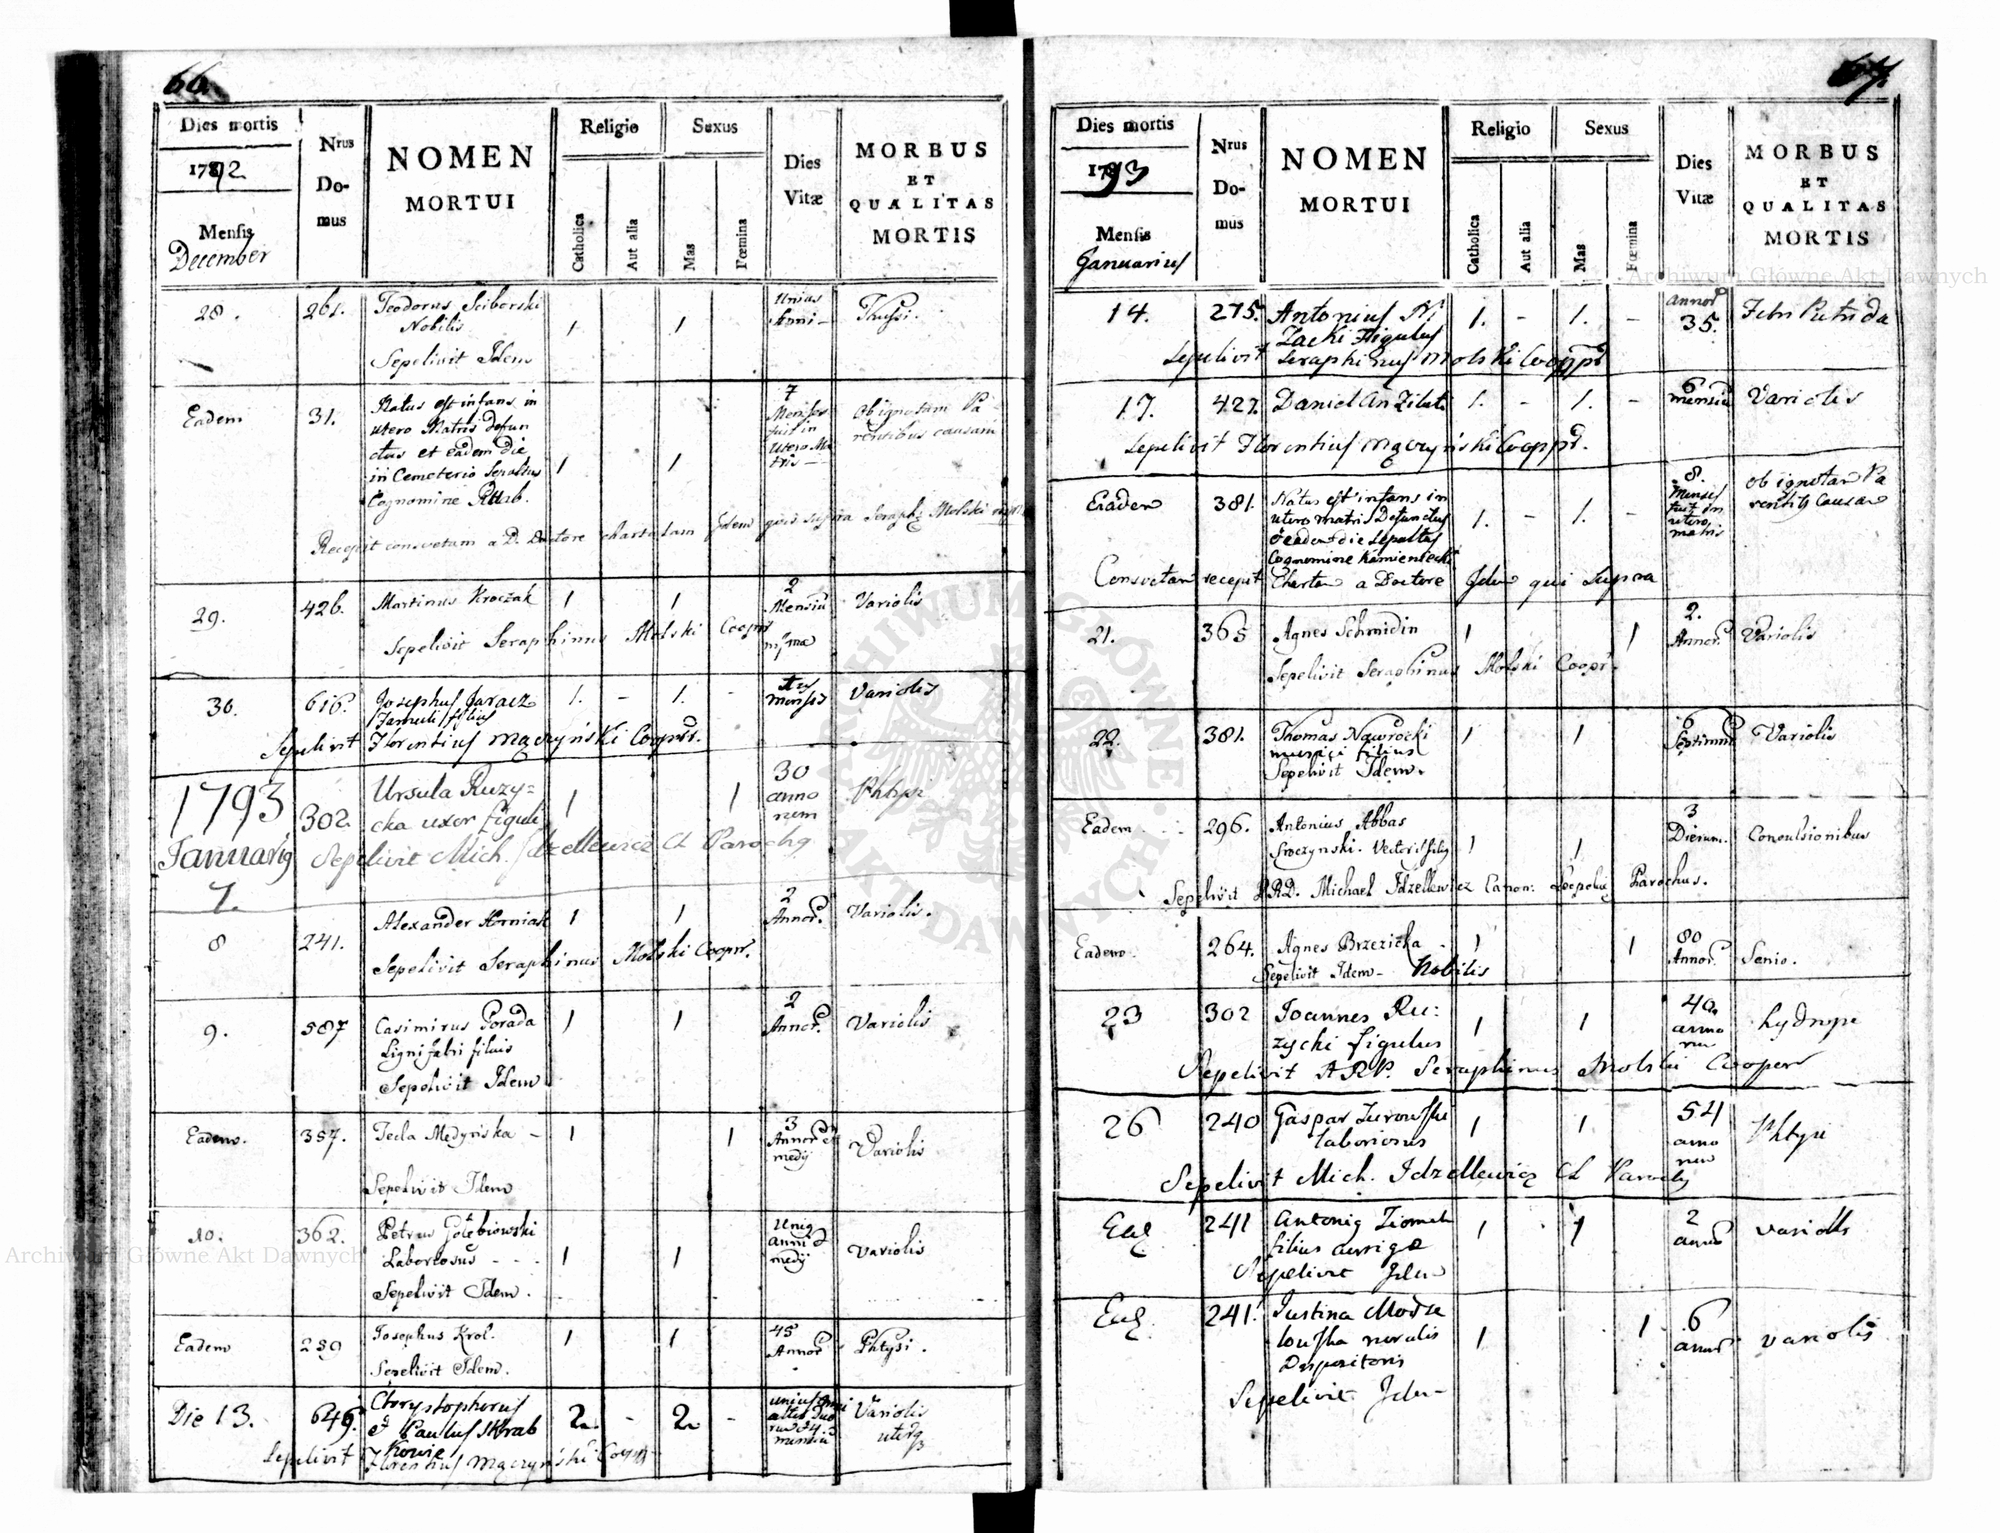 66.
Dies mortis
1792
Mensis
December
Nrus
Do-
mus
NOMEN
MORTUI
Religio
Catholica
Aut alia
Sexus
Mas
Fœmina
Dies
Vitæ
MORBUS
ET
QUALITAS
MORTIS
28. 261. Teodorus Sciborski 1 1 Unius
Nobilis Anni Thussi.
Sepelivit Idem
Eadem 31. Natus est infans in 7 Ob ignotam Pa-
utero Matris defun Menses rentibus causam
ctus et eadem die fuit in
in Cemeterio Sepultus 1 1 Utero Ma
Cognomine tris
Recepit consvetam a D. Doctore chartulam Idem qui supra Seraph: Molski
29. 426. Martinus Kroczak 1 1 2 Variolis
Mensiu
Sepelivit Seraphinus Molski Cooprr
30. 616. Josephus Jaracz 1. - 1. - Variolis
Famuli filius menses
Sepelivit Florentius Mączyński Cooprr.
1793
Januarius
7.
302. Ursula Ruzy= 1 1 30 Phtysi
cka uxor figuli anno
rum
Sepelivit Mich. Idzellewicz CL Parochq
8 241. Alexander Korniak 1 1 2 Variolis.
Annor.
Sepelivit Seraphinus Molski Cooprr.
9. 587 Casimirus Porada 1 1 2 Variolis
Lignifabri filius Annor.
Sepelivit Idem
Eadem. 357. Tecla Medyńska - 1 1 3
Annor et
medij Variolis
Sepelivit Idem
10. 362. Petrus Gołębiowski Uniq
Laboriosus - - . 1 1 anni &
medij Variolis
Sepelivit Idem.
Eadem 259 Josephus Krol. 1 1 45
Annor Phtysi.
Sepelivit Idem.
Die 13. 646. Chrystophorus Variolis
et Paulus Skrab 2. - 2. - uterq
kowie
Sepelivit Florentius Mączyński Coop
67.
Dies mortis
1793
Mensis
Januarius
Nrus
Do-
mus
NOMEN
MORTUI
Religio
Catholica
Aut alia
Sexus
Mas
Fœmina
Dies
Vitæ
MORBUS
ET
QUALITAS
MORTIS
14. 275. Antonius 1. - 1. - Annor Febri Putrida
Figulus 35.
Sepelivit Seraphinus Molski Cooppr
17. 427. Daniel 1. - 1. - 6 Variolis
mensiu
Sepelivit Florentius Mączyński Cooppr.
Eadem 381. Natus est infans in 8. ob ignotam Pa
utero matris Defunctus 1. - 1. - Menses rentibq Causam
eadem die Sepultus fuit in
Cognomine Kamieniecki utero
matris
Consvetam recepit Chartam a Doctore Idem qui Supra
21. 365 Agnes Schmidin 1 1 2. Variolis
Annor.
Sepelivit Seraphinus Molski Coopr.
22. 381. Thomas Nawrocki 1 1 Variolis
filius Septiman
Sepelivit Idem.
Eadem 296. Antonius Abbas 3
Sroczynski. Vectoris filiq 1 1 Dierum. Convulsionibus
Sepelivit P.R.D. Michael Idzellewicz Canon: Leopoliē Parochus.
Eadem. 264. Agnes Brzezicka 1 1 80
Annor. Senio.
Sepelivit Idem - Nobilis
23 302 Joannes Ru: 1 1 40 hydrope
zycki figulus anno
rum
Sepelivit ARP. Seraphinus Molski Cooper
26 240 Gaspar Zurowski 1 1 54 Phtysi
laboriosus anno
rum
Sepelivit Mich. Idzellewicz CL Parochq
Ead 241 Antoniq Ziomek 1 1 2 variolis
filius aurigae annor
Sepelivit Idem
Ead. 241. Justina Modze 1 1 6 variolis
lowska annor
Sepelivit Idem
Archiwum Główne Akt Dawnych
Archiwum Główne Akt Dawnych
ARCHIWUM GŁÓWNE AKT DAWNYCH